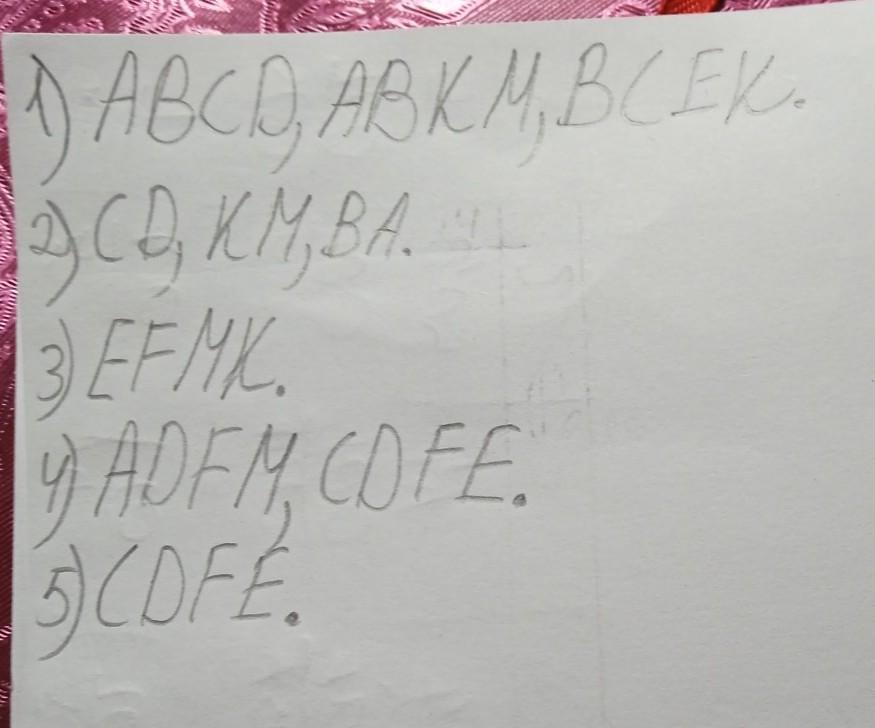 1) ABCD, ABKM, BCEK.
2) CD, KM, BA.
3) EFMK.
4) ADFM, CDFE.
5) CDFE.